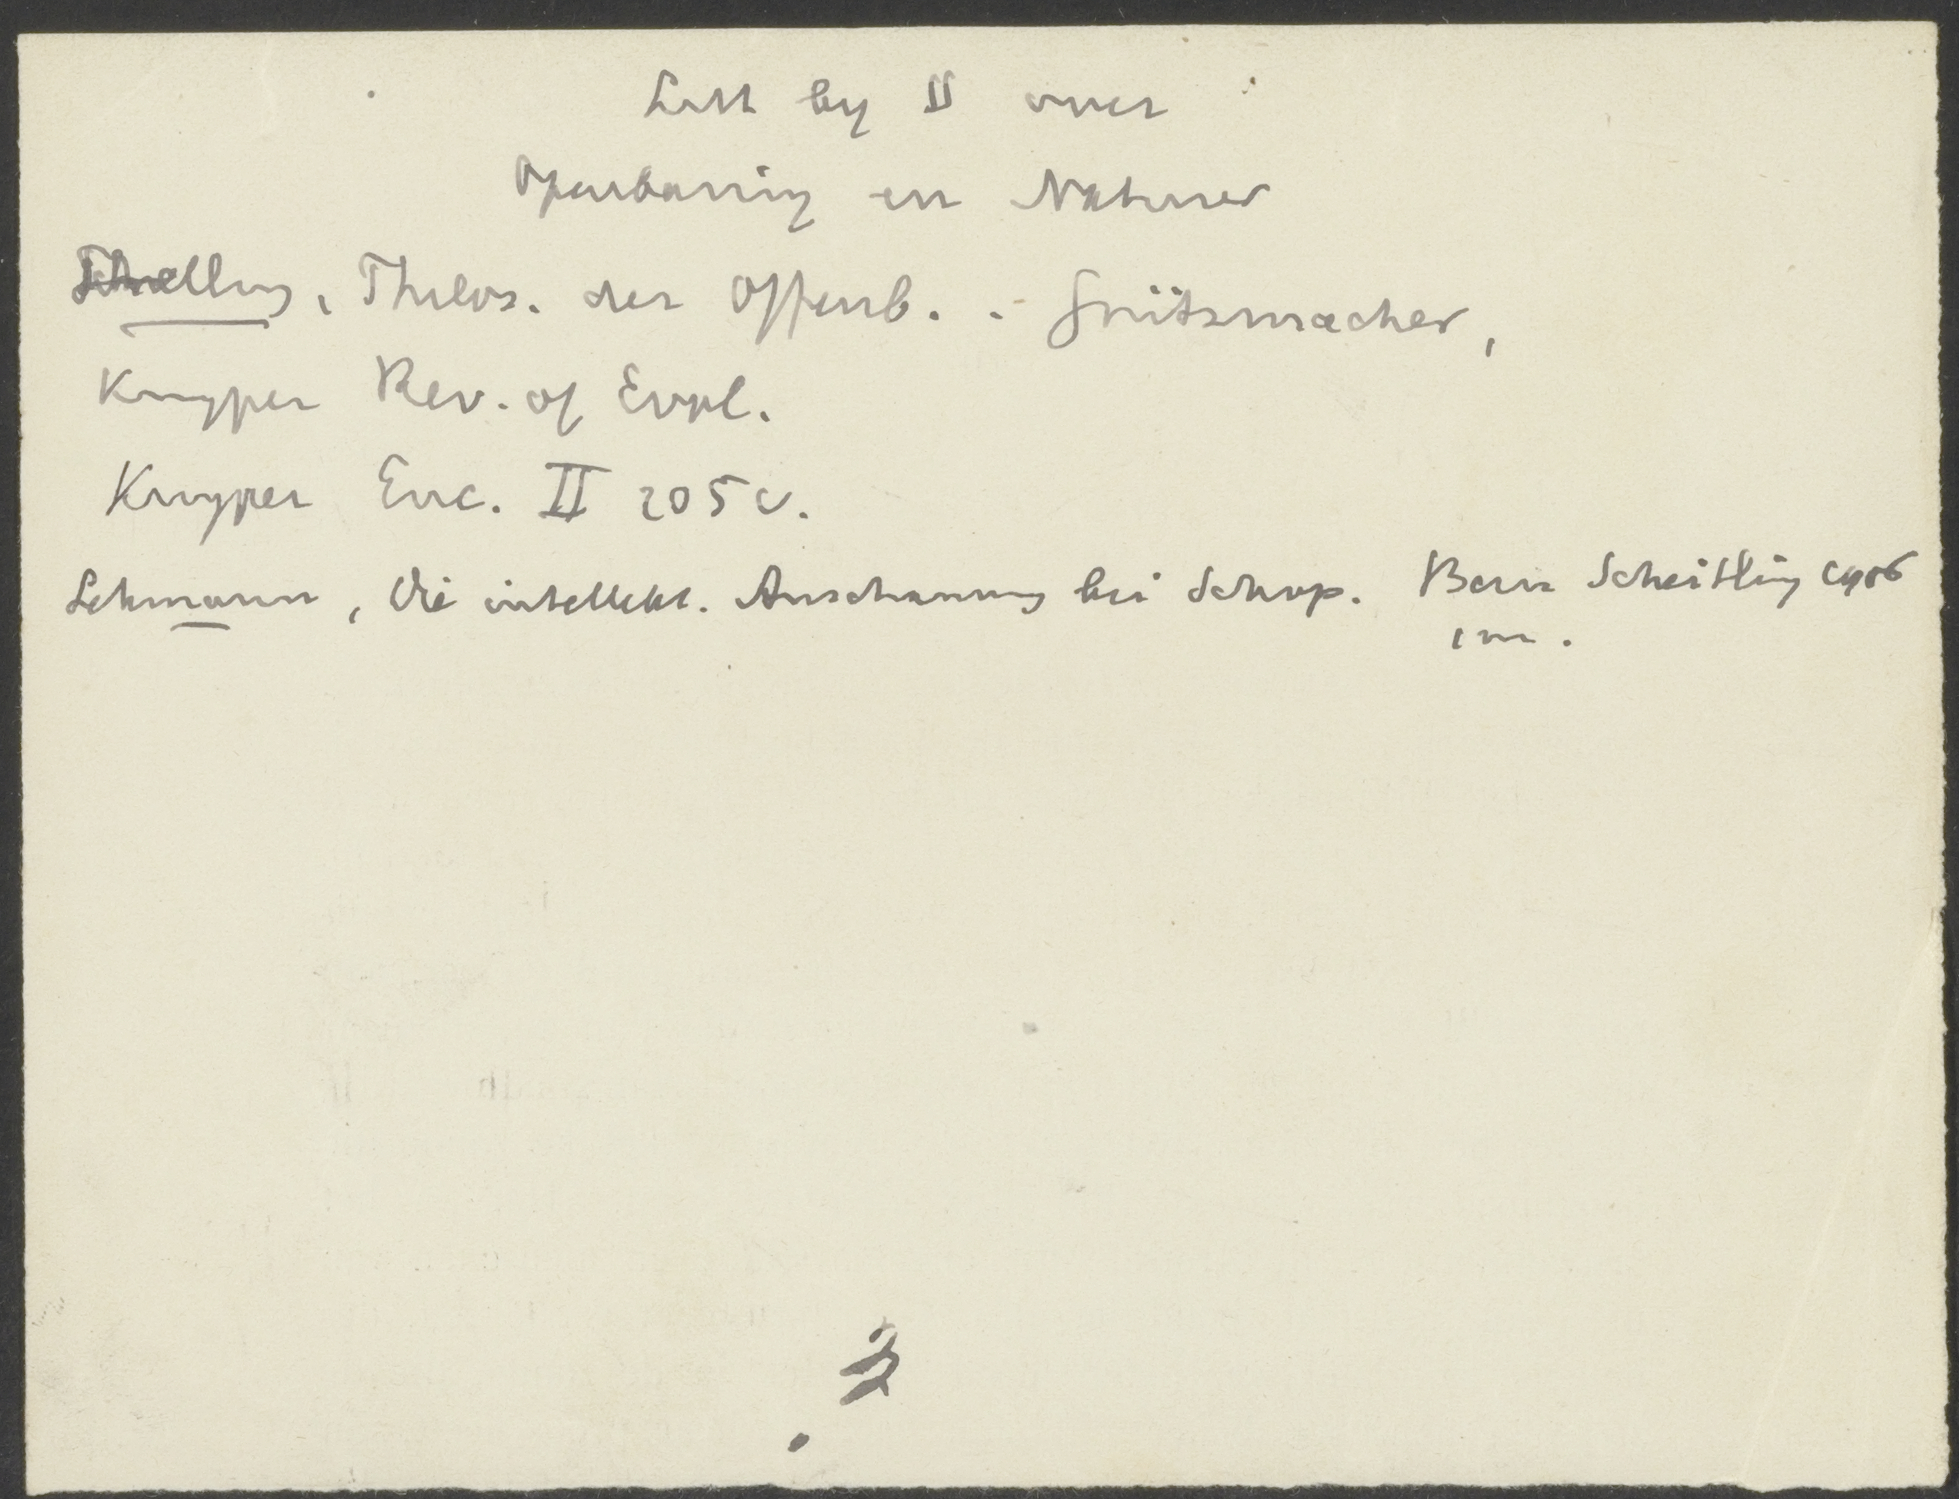 Litt by II over
Openbaring en Natuur
Schelling, Philos. der Offenb. - Grützmacher,
Kuyper Rev. of Evol.
Kuyper Enc. II 205 v.
Lehmann, Die intellekt. Anschauung bei Schop. Bern Scheitlin 1906
1 m.